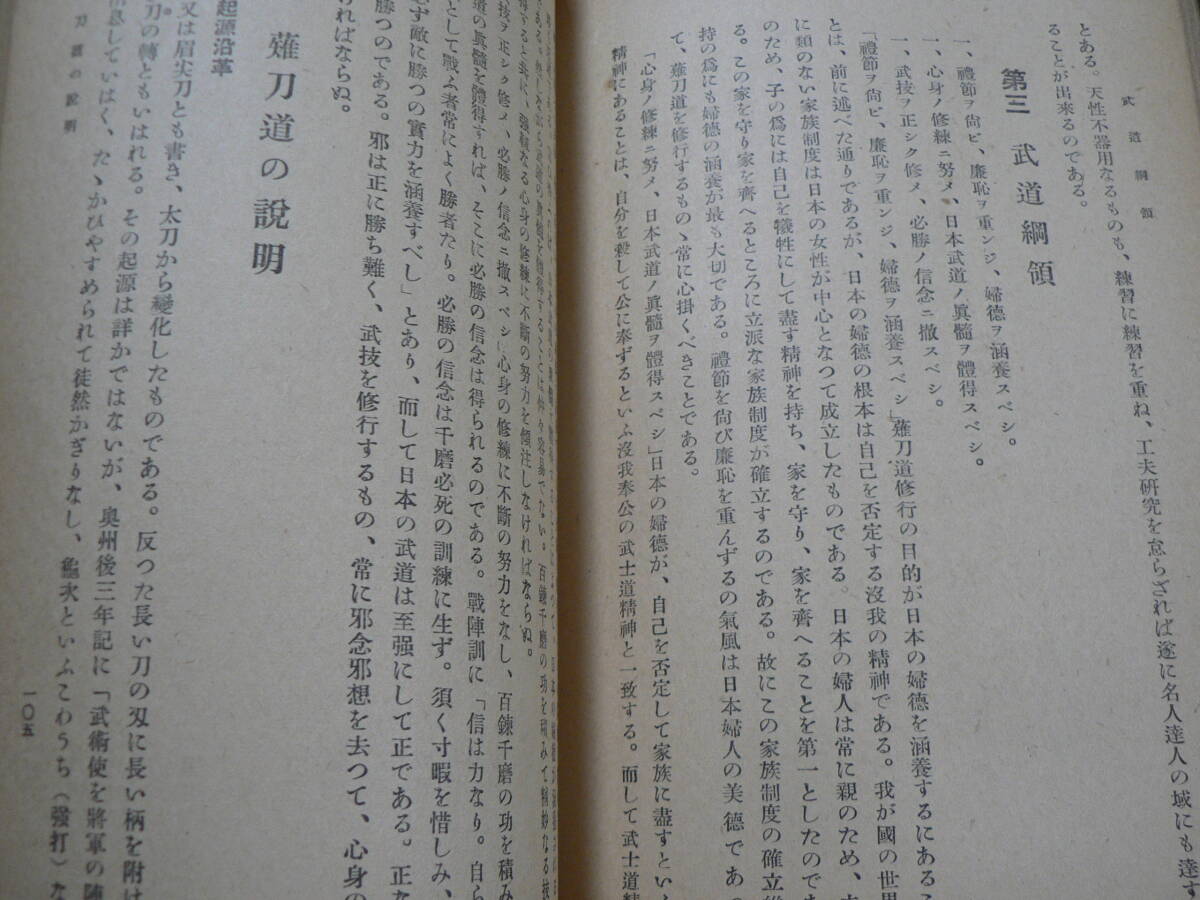 武道綱領
とある。天性不器用なるものも、練習に練習を重ね、工夫研究を怠らざれば遂に名人達人の域にも達す
ることが出来るのである。
第三 武道綱領
一、禮節ヲ尙ビ、廉恥ヲ重ンジ、婦德ヲ涵養スベシ。
一、心身ノ修練ニ努メ、日本武道ノ眞髓ヲ體得スベシ。
一、武技ヲ正シク修メ、必勝ノ信念ニ撤スベシ。
「禮節ヲ尙ビ、廉恥ヲ重ンジ、婦德ヲ涵養スベシ」薙刀道修行の目的が日本の婦德を涵養するにあるこ
とは、前に述べた通りであるが、日本の婦德の根本は自己を否定する沒我の精神である。我が國の世界
に類のない家族制度は日本の女性が中心となつて成立したものである。日本の婦人は常に親のため、
のため、子の爲には自己を犧牲にして盡す精神を持ち、家を守り、家を齊へることを第一としたので
る。この家を守り家を齊へるところに立派な家族制度が確立するのである。故にこの家族制度の確立
持の爲にも婦德の涵養が最も大切である。禮節を尙び廉恥を重んずるの氣風は日本婦人の美德であ
て、薙刀道を修行するものゝ常に心掛くべきことである。
「心身ノ修練ニ努メ、日本武道ノ眞髓ヲ體得スベシ」日本の婦德が、自己を否定して家族に盡すとい
精神にあることは、自分を殺して公に奉ずるといふ沒我奉公の武士道精神と一致する。而して武士道精
得すると共に、强靱なる心身の修練に不斷の努力を傾注しなければならぬ。
武技ヲ正シク修メ、必勝ノ信念ニ撤スベシ」心身の修練に不斷の努力をなし、百鍊千磨の功を積み
道の眞髓を體得すれば、そこに必勝の信念は得られるのである。戰陣訓に「信は力なり。自ら
として戰ふ者常によく勝者たり。必勝の信念は千磨必死の訓練に生ず。須く寸暇を惜しみ、
必ず敵に勝つの實力を涵養すべし」とあり、而して日本の武道は至强にして正である。正な
勝つのである。邪は正に勝ち難く、武技を修行するもの、常に邪念邪想を去つて、心身の
ければならぬ。
薙刀道の說明
起源沿革
又は眉尖刀とも書き、太刀から變化したものである。反つた長い刀の刃に長い柄を附け
刀の轉ともいはれる。その起源は詳かではないが、奧州後三年記に「武術使を將軍の陣
息していはく、たゝかひやすめられて徒然かぎりなし、龜次といふこわうち（强打）な
刀道の說明
一〇五